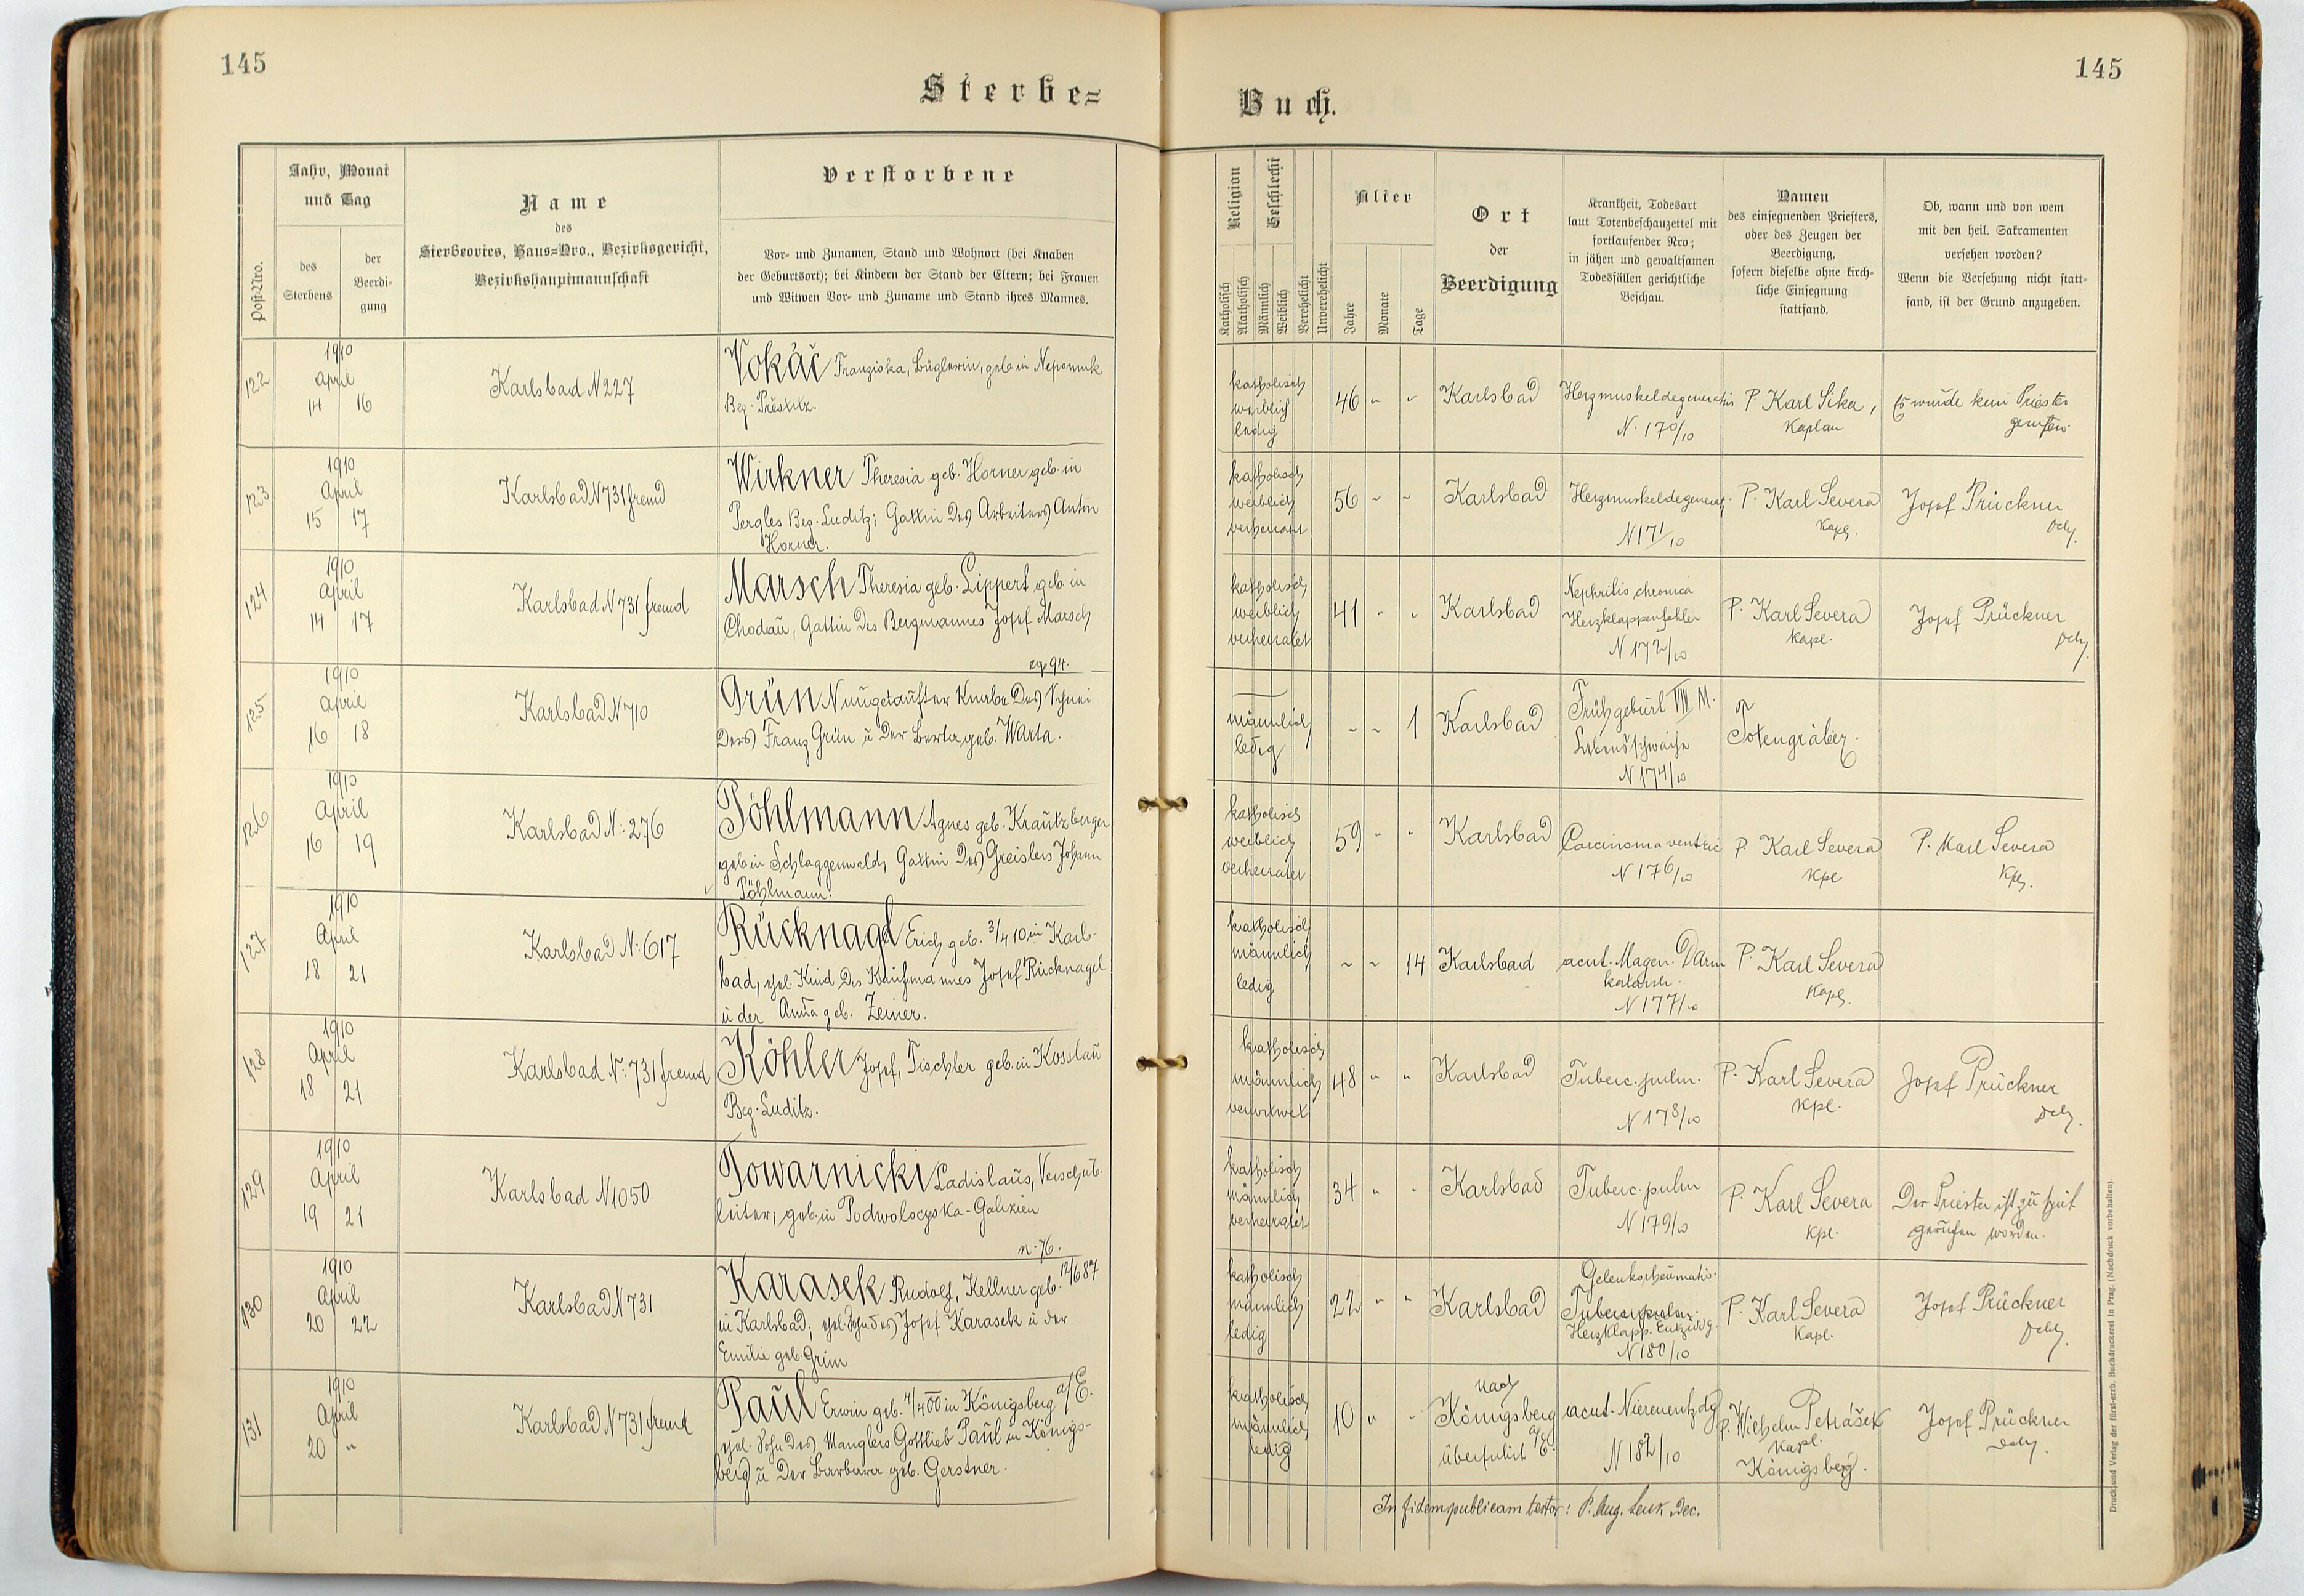 145
145
Sterbe=
Buch.
Post-Nro.
Jahr, Monat
und Tag
des
Sterbens
der
Beerdi-
gung
Name
des
Sterbeortes, Haus=Nro., Bezirksgericht,
Bezirkshauptmannschaft
Verstorbene
Vor- und Zunamen, Stand und Wohnort (bei Knaben
der Geburtsort); bei Kindern der Stand der Eltern; bei Frauen
und Witwen Vor- und Zuname und Stand ihres Mannes.
Religion
Katholisch
Akatholisch
Geschlecht
Männlich
Weiblich
Verehelicht
Unverehelicht
Alter
Jahre
Monate
Tage
Ort
der
Beerdigung
Krankheit, Todesart
laut Totenbeschauzettel mit
fortlaufender Nro;
in jähen und gewaltsamen
Todesfällen gerichtliche
Beschau.
Namen
des einsegnenden Priesters,
oder des Zeugen der
Beerdigung,
sofern dieselbe ohne kirch-
liche Einsegnung
stattfand.
Ob, wann und von wem
mit den heil. Sakramenten
versehen worden?
Wenn die Versehung nicht statt-
fand, ist der Grund anzugeben.
122
1910
April
14 16
Karlsbad N 227
Vokáč Franziska, Büglerin, geb in Nepomuk
Bez. Přestitz.
katholisch
weiblich
ledig
46 " "
Karlsbad
Herzmuskeldegeneration
N. 170/10
P. Karl Sika,
Kaplan
Es wurde kein Priester
gerufen.
123
1910
April
15 17
Karlsbad N 731 fremd
Wirkner Theresia geb. Horner geb. in
Pergles Bez. Luditz; Gattin des Arbeiters Anton
Horner.
katholisch
weiblich
verheiratet
56 " "
Karlsbad
Herzmuskeldegenerat.
N 171/10
P. Karl Severa
Kapl.
Josef Prückner
Dch.
124
1910
April
14 17
Karlsbad N 731 fremd
Marsch Theresia geb. Lippert geb. in
Chodau, Gattin des Bergmannes Josef Marsch
katholisch
weiblich
verheiratet
41 " "
Karlsbad
Nephritis chronica
Herzklappenfehler
N 172/10
P. Karl Severa
Kapl.
Josef Prückner
Dch.
125
1910
April
16 18
Karlsbad N 710
94.
Grün Nungetaufter Knabe des Schnei
ders Franz Grün u der Berta geb. Warta.
männlich
ledig
" " 1
Karlsbad
Frühgeburt VIII M.
Lebensschwäche
N 174/10
Totengräber.
126
1910
April
16 19
Karlsbad N: 276
Pöhlmann Agnes geb. Krautzberger
geb in Schlaggenwald, Gattin des Greislers Johann
Pöhlmann.
katholisch
weiblich
verheiratet
59 " "
Karlsbad
Carcinoma ventric
N 176/10
P. Karl Severa
Kpl
P. Karl Severa
Kpl.
127
1910
April
18 21
Karlsbad N: 617
Rücknagel Erich geb. 3/4 10 in Karls-
bad, ehel. Kind des Kaufmannes Josef Rücknagel
u der Anna geb. Zeiner.
katholisch
männlich
ledig
" " 14
Karlsbad
acut. Magen. Darm
katarrh.
N 177/10
P. Karl Severa
Kapl.
128
1910
April
18 21
Karlsbad N: 731 fremd
Köhler Josef, Tischler geb. in Kosslau
Bez. Luditz.
katholisch
männlich
verwitwet
48 " "
Karlsbad
Tuberc. pulm.
N 178/10
P. Karl Severa
Kpl.
Josef Prückner
Dch.
129
1910
April
19 21
Karlsbad N 1050
Towarnicki Ladislaus, Verschub-
leiter, geb. in Podwolocyska-Galizien
katholisch
männlich
verheiratet
34 " "
Karlsbad
Tuberc. pulm
N 179/10
P. Karl Severa
Kpl.
Der Priester ist zu spät
gerufen worden.
130
1910
April
20 22
Karlsbad N 731
n. 76.
Karasek Rudolf, Kellner geb. 12/6 87
in Karlsbad; ehel. Sohn des Josef Karasek u der
Emilie geb. Grim
katholisch
männlich
ledig
22 " "
Karlsbad
Gelenksrheumatis.
Tuberc. pulm.
Herzklapp. Entzündg.
N 180/10
P. Karl Severa
Kapl.
Josef Prückner
Dch.
131
1910
April
20 "
Karlsbad N 731 fremd
Paul Erwin geb. 4/4 00 in Königsberg a/E.
ehel. Sohn des Manglers Gottlieb Paul in Königs-
berg u der Barbara geb. Gerstner.
katholisch
männlich
ledig
10 " "
Nach
Königsberg
a/E.
überführt
acut. Nierenentzdg
N 182/10
P. Wilhelm Petrášek
Kapl.
Königsberg.
Josef Prückner
Dch.
In fidem publicam testor: P. Aug. Lenk Dec.
Druck und Verlag der fürst-erzb. Buchdruckerei in Prag. (Nachdruck vorbehalten).